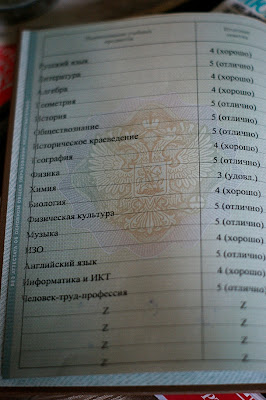 Наименование учебных предметов Итоговая отметка
Русский язык 4 (хорошо)
Литература 5 (отлично)
Алгебра 4 (хорошо)
Геометрия 5 (отлично)
История 4 (хорошо)
Обществознание 5 (отлично)
Историческое краеведение 5 (отлично)
География 4 (хорошо)
Физика 5 (отлично)
Химия 3 (удовл.)
Биология 5 (отлично)
Физическая культура 5 (отлично)
Музыка 5 (отлично)
ИЗО 4 (хорошо)
Английский язык 5 (отлично)
Информатика и ИКТ 4 (хорошо)
Человек-труд-профессия 5 (отлично)
Z Z
Z Z
Z Z
Z Z